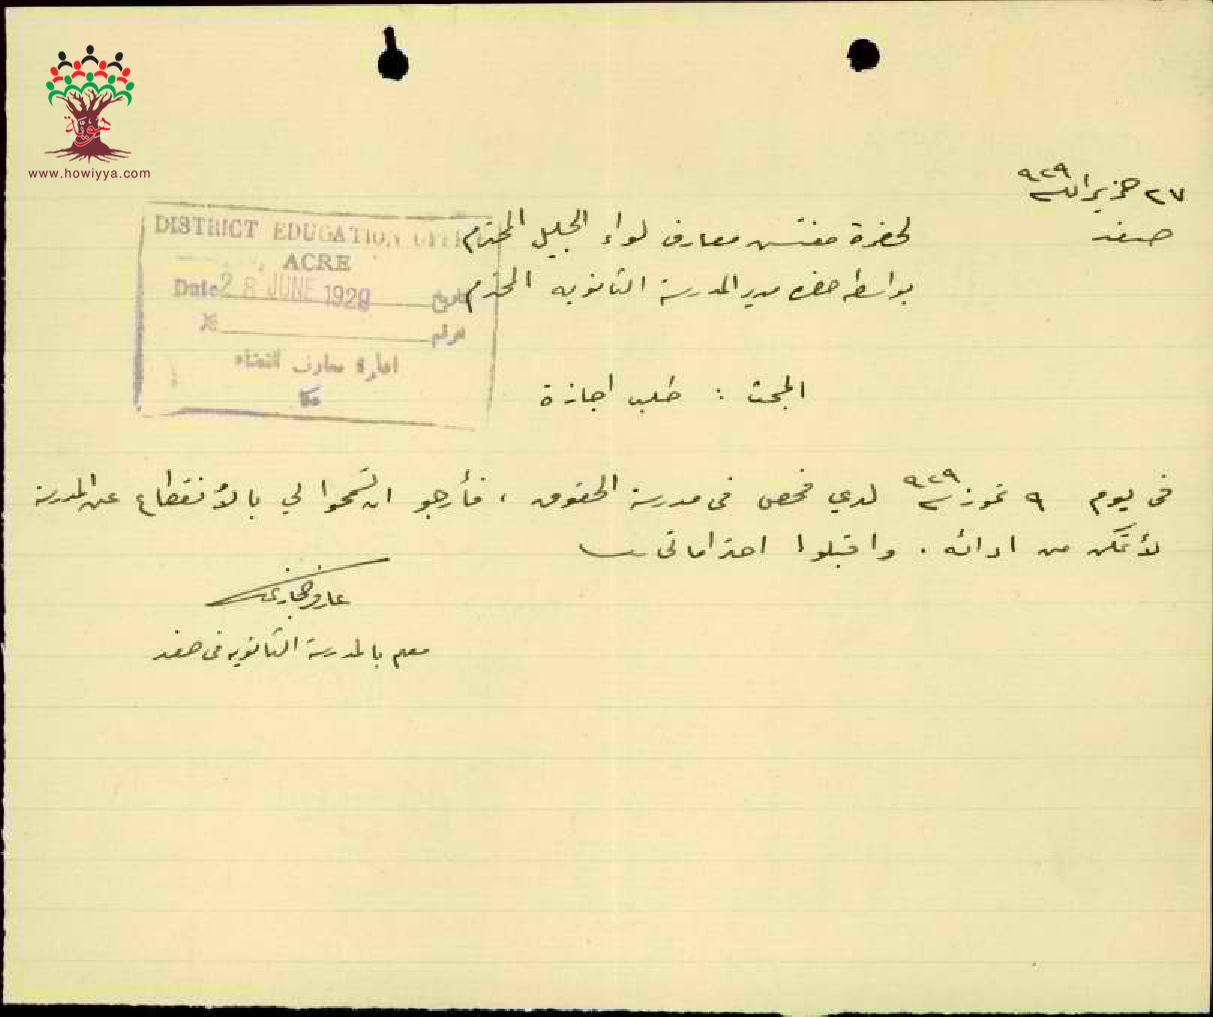 هوية
www.howiyya.com
٢٧ حزيران سنة ٩٢٩
صفد
لحضرة مفتش معارف لواء الجليل المحترم
بواسطة حضرة مدير المدرسة الثانويه المحترم
DISTRICT EDUCATION OFFICE
ACRE
Date 28 JUNE 1929 تاريخ
№ الرقم
ادارة معارف القضاء
عكا
المبحث : طلب اجازة
في يوم ٩ تموز سنة ٩٢٩ لدي فحص في مدرسة الحقوق ، فأرجو ان تسمحوا لي بالأنقطاع عن المدرسة
لأتمكن من ادائه . واقبلوا احتراماتي
معلم بالمدرسة الثانويه في صفد